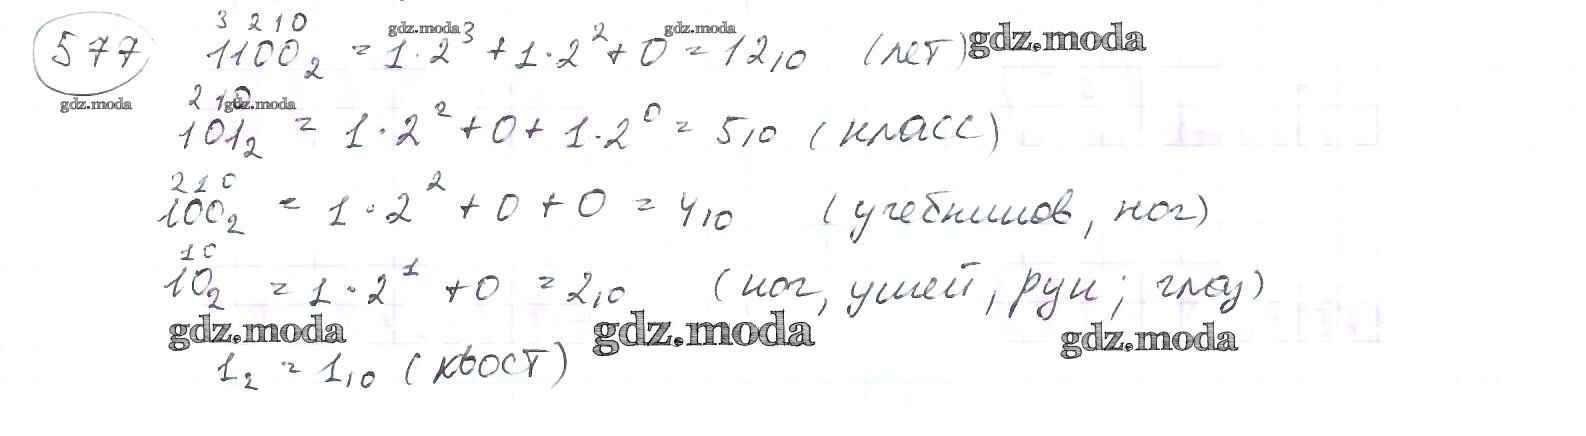 3 2 1 0
577 1100₂ = 1·2³ + 1·2² + 0 = 12₁₀ (лет)
gdz.moda gdz.moda gdz.moda
gdz.moda gdz.moda
2 1 0
101₂ = 1·2² + 0 + 1·2⁰ = 5₁₀ (класс)
2 1 0
100₂ = 1·2² + 0 + 0 = 4₁₀ (учебников, ног)
1 0
10₂ = 1·2¹ + 0 = 2₁₀ (ног, ушей, рук; глаз)
gdz.moda gdz.moda gdz.moda
1₂ = 1₁₀ (хвост)